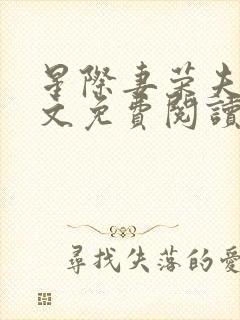 星際妻榮夫
文免費閱讀
尋找失落的愛